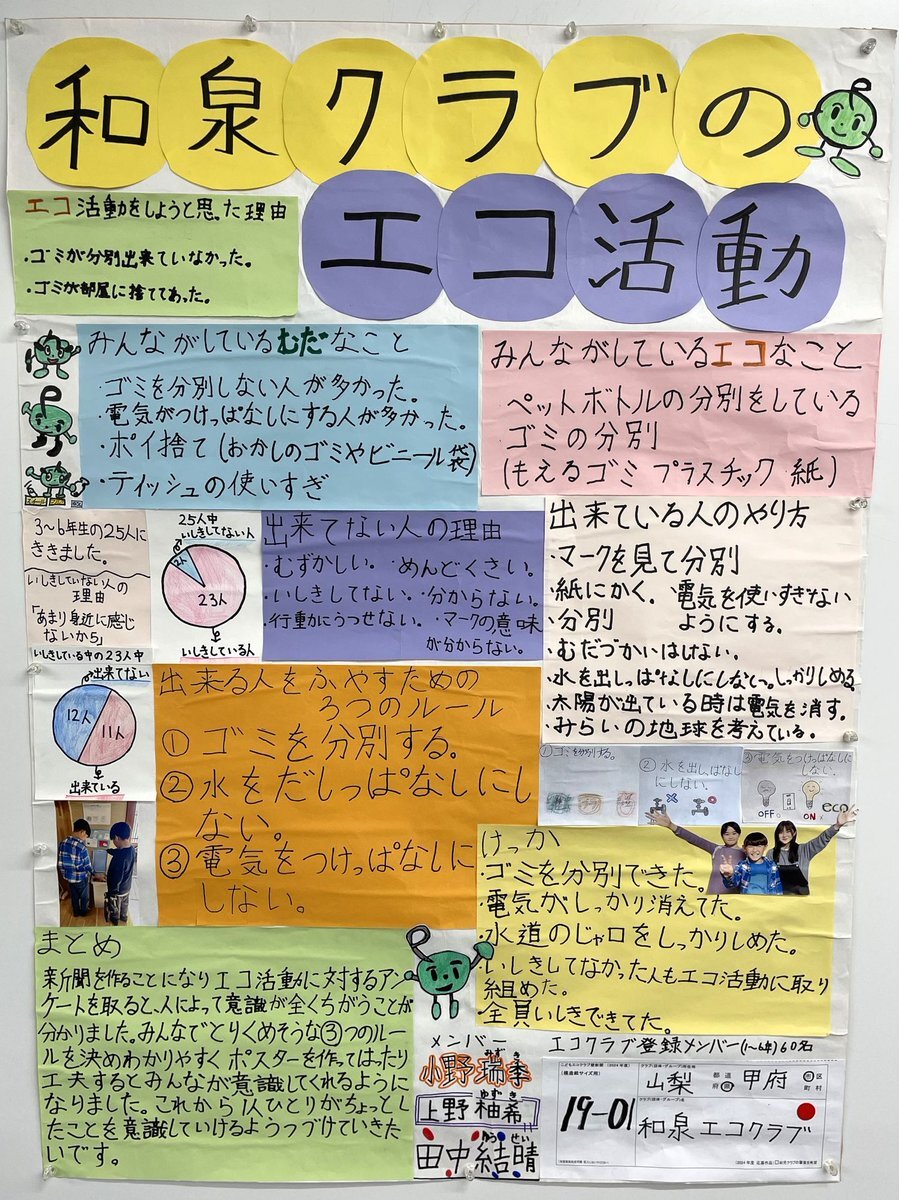 和泉クラブの
エコ活動
エコ活動をしようと思った理由
・ゴミが分別出来ていなかった。
・ゴミが部屋に捨ててあった。
みんながしているむだなこと
・ゴミを分別しない人が多かった。
・電気がつけっぱなしにする人が多かった。
・ポイ捨て(おかしのゴミやビニール袋)
・ティッシュの使いすぎ
みんながしているエコなこと
ペットボトルの分別をしている
ゴミの分別
(もえるゴミ プラスチック 紙)
3〜6年生の25人に
ききました。
いしきしていない人の
理由
「あまり身近に感じ
ないから」
いしきしている中の23人中
25人中
いしきしてない人
2人
23人
いしきしている人
出来てない人の理由
・むずかしい。 めんどくさい。
・いしきしてない。・分からない。
・行動にうつせない。・マークの意味
が分からない。
出来ている人のやり方
・マークを見て分別
・紙にかく。 電気を使いすぎない
ようにする。
・分別
・むだづかいはしない。
・水を出しっぱなしにしない。しっかりしめる。
・太陽が出ている時は電気を消す。
・みらいの地球を考えている。
出来てない
12人
11人
出来ている
出来る人をふやすための
3つのルール
①ゴミを分別する。
②水をだしっぱなしにし
ない。
③電気をつけっぱなしに
しない。
①ゴミを分別する。
②水を出しっぱなし
にしない。
③電気をつけっぱなしに
しない。
OFF
ON
eco
けっか
・ゴミを分別できた。
・電気がしっかり消えてた。
・水道のじゃ口をしっかりしめた。
・いしきしてなかった人もエコ活動に取り
組めた。
・全員いしきできてた。
まとめ
新聞を作ることになりエコ活動に対するアン
ケートを取ると、人によって意識が全くちがうことが
分かりました。みんなでとりくめそうな③つのルー
ルを決めわかりやすくポスターを作ってはったり
工夫するとみんなが意識してくれるように
なりました。これから1人ひとりがちょっとし
たことを意識していけるようつづけていきた
いです。
メンバー
小野瑞季
みずき
上野柚希
ゆずき
田中結晴
ゆうせい
エコクラブ登録メンバー(1〜6年)60名
(模造紙サイズ用)
19-01
山梨 都道府県 甲府 市区町村
和泉エコクラブ